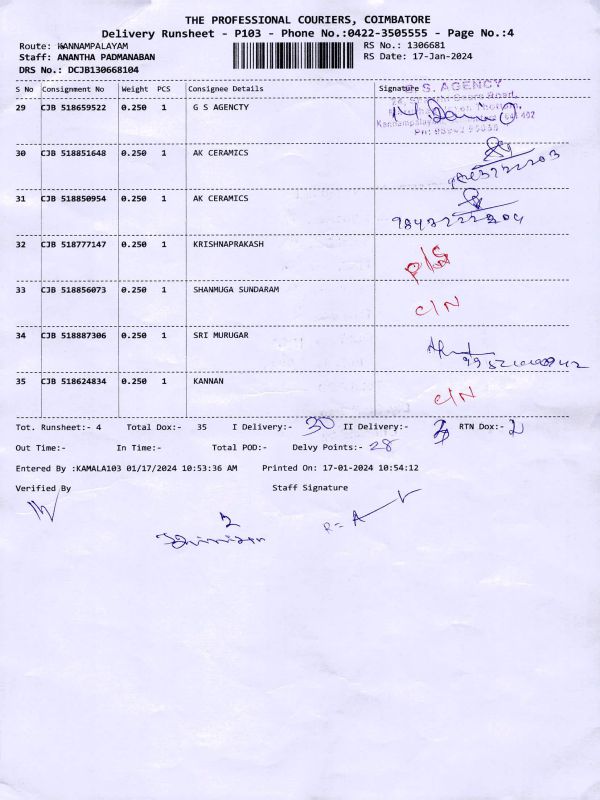 THE PROFESSIONAL COURIERS, COIMBATORE
Delivery Runsheet - P103 - Phone No.:0422-3505555 - Page No.:4
Route: KANNAMPALAYAM RS No.: 1306681
Staff: ANANTHA PADMANABAN RS Date: 17-Jan-2024
DRS No.: DCJB130668104
S No Consignment No Weight PCS Consignee Details Signature
29 CJB 518659522 0.250 1 G S AGENCTY
S. AGENCY
30 CJB 518851648 0.250 1 AK CERAMICS
31 CJB 518850954 0.250 1 AK CERAMICS
32 CJB 518777147 0.250 1 KRISHNAPRAKASH
33 CJB 518856073 0.250 1 SHANMUGA SUNDARAM C/N
34 CJB 518887306 0.250 1 SRI MURUGAR
35 CJB 518624834 0.250 1 KANNAN C/N
Tot. Runsheet:- 4 Total Dox:- 35 I Delivery:- 30 II Delivery:- RTN Dox:- 2
Out Time:- In Time:- Total POD:- Delvy Points:- 28
Entered By :KAMALA103 01/17/2024 10:53:36 AM Printed On: 17-01-2024 10:54:12
Verified By Staff Signature